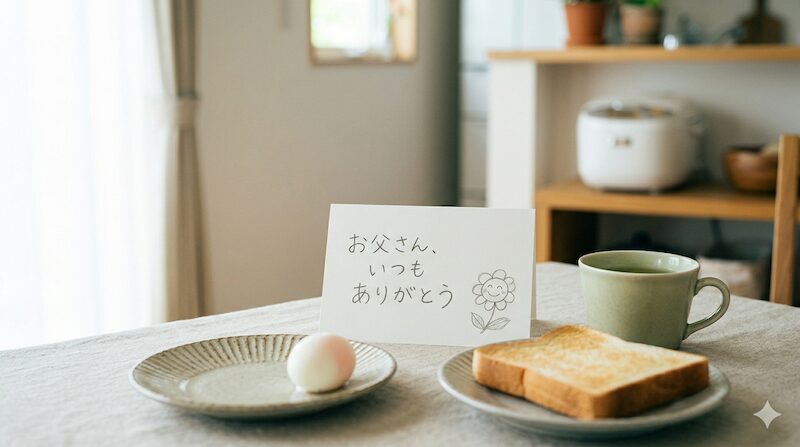 お父さん、
いつも
ありがとう